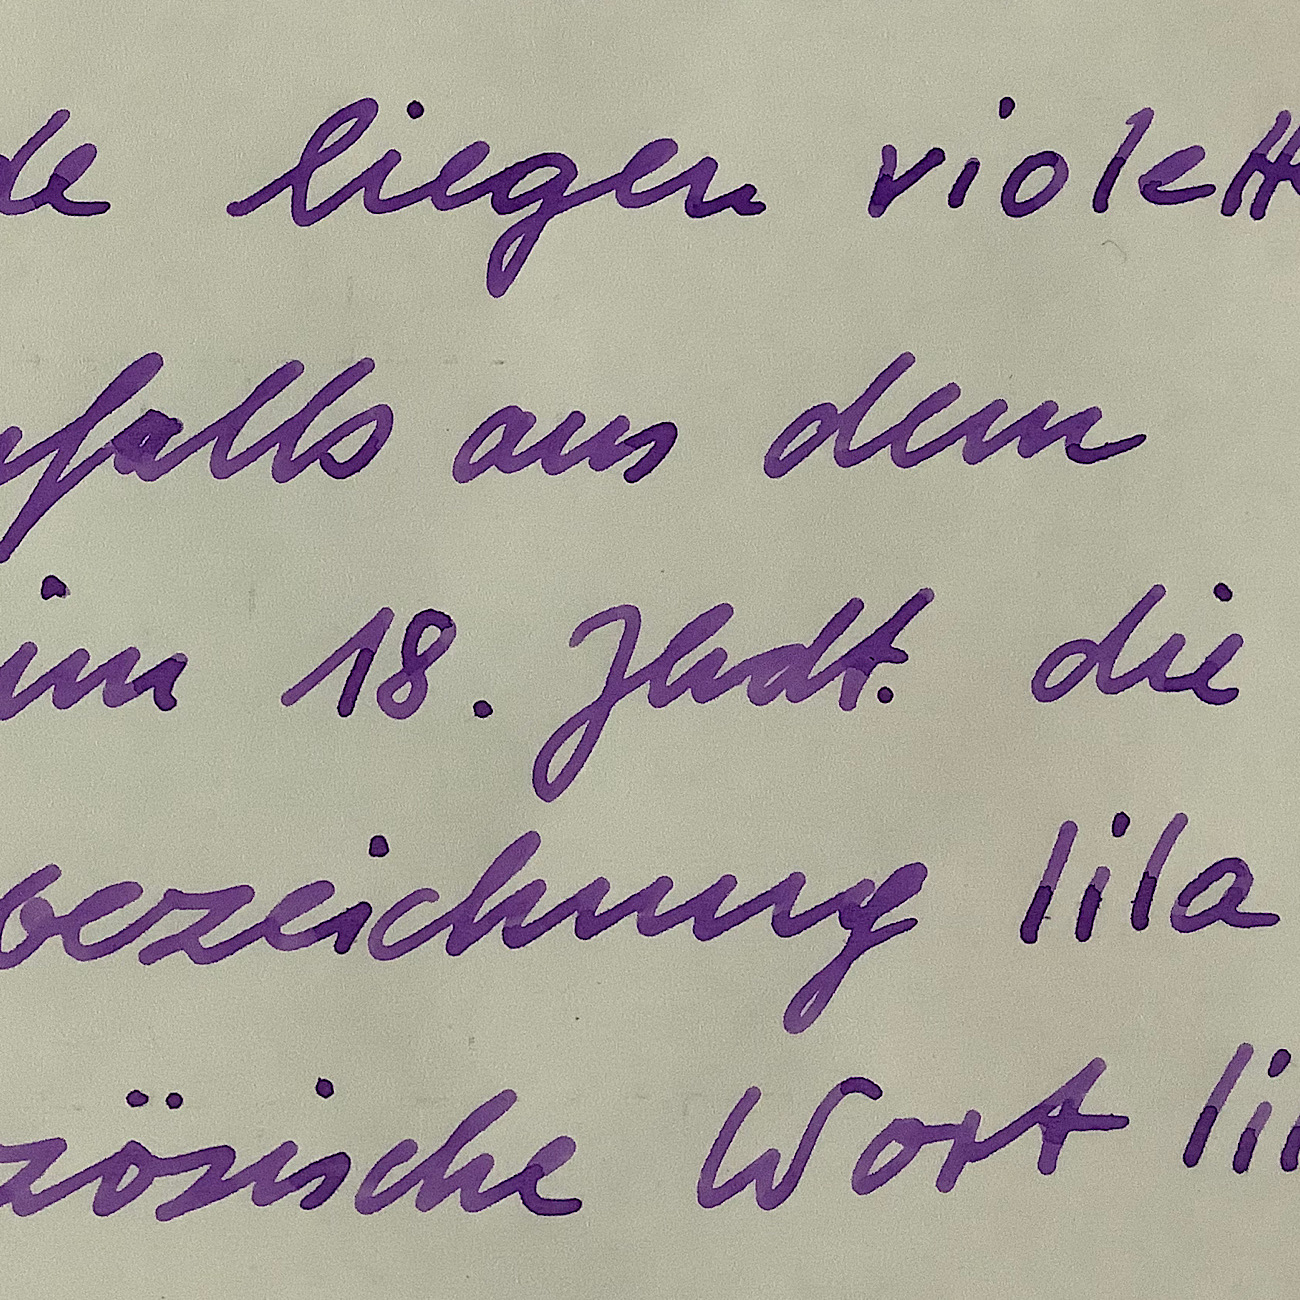 de liegen violett
nfalls aus dem
im 18. Jhdt. die
bezeichnung lila
zösische Wort lil